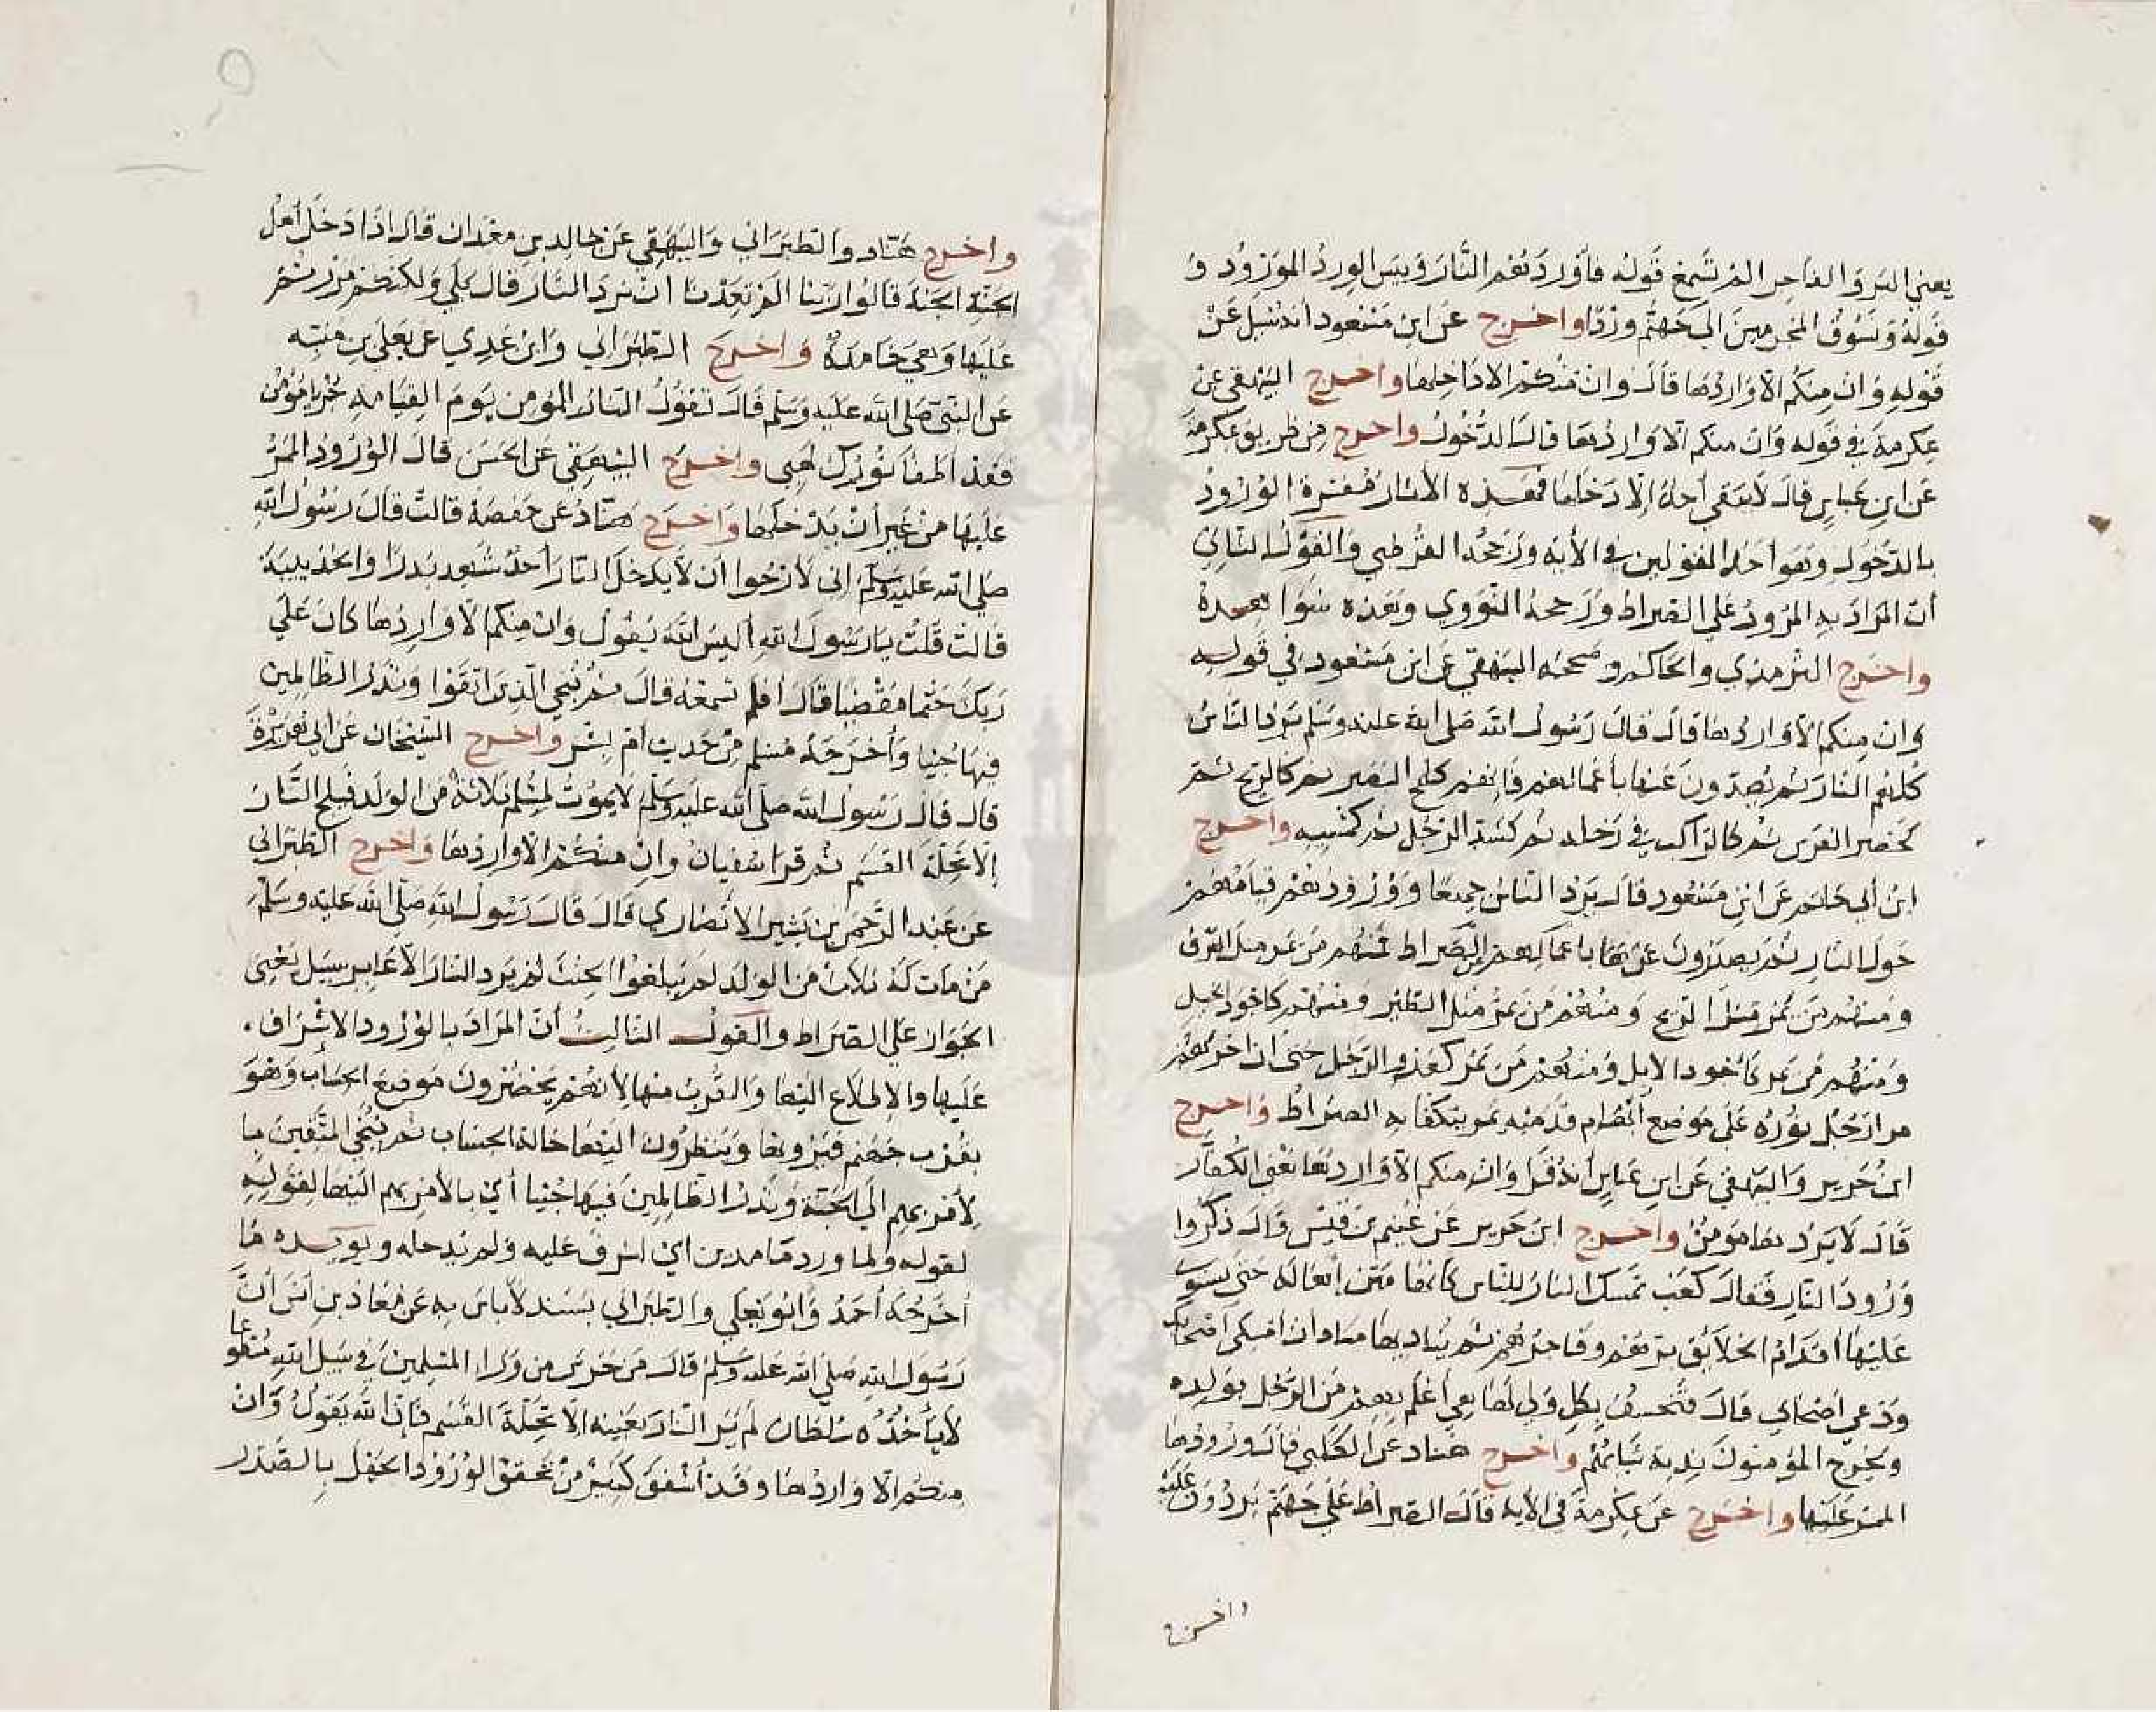 يعني البر والفاجر الم تسمع قوله فأوردهم النار وبيس الورد المورود و
قوله ونسوق المجرمين الي جهنم وردا واخرج عن ابن مسعود انه سيل عن
قوله وان منكم الا واردها قال وان منكم الا داخلها واخرج البيهقي عن
عكرمة في قوله وان منكم الا واردها قال الدخول واخرج من طريق عكرمة
عن ابن عباس قال لا يبقي أحد إلا دخلها فهذه الأثار مفسرة الورود
بالدخول وهو أحد القولين في الأية ورجحه القرطبي والقول الثاني
أن المراد به المرور علي الصراط ورجحه النووي وهذه شواهده
واخرج الترمذي والحاكم وصححه البيهقي عن ابن مسعود في قوله
وان منكم الا واردها قال قال رسول الله صلي الله عليه وسلم يرد الناس
كلهم النار ثم يصدرون عنها بأعمالهم فاولهم كلمح البصر ثم كالريح ثم
كحضر الفرس ثم كالراكب في رحله ثم كشد الرجل ثم كمشيه واخرج
ابن أبي حاتم عن ابن مسعود قال يرد الناس جميعا وورودهم قيامهم
حول النار ثم يصدرون عنها باعمالهم من الصراط فمنهم من يمر مثل البرق
ومنهم من يمر مثل الريح ومنهم من يمر مثل الطير ومنهم كاجود الخيل
ومنهم من يمر كاجود الابل ومنهم من يمر كعدو الرجل حتى ان اخرهم
مرا رجل نوره علي موضع ابهام قدميه يمر يتكفا به الصراط واخرج
ابن جرير والبيهقي عن ابن عباس أنه قرا وان منكم الا واردها يعني الكفار
قال لا يردها مومن واخرج ابن جرير عن غنيم بن قيس قال ذكروا
ورود النار فقال كعب تمسك النار للناس كانها متن إهالة حتى يستوي
عليها أقدام الخلايق برهم وفاجرهم ثم يناديها مناد ان امسكي اصحابك
ودعي اصحابي قال فتخسف بكل ولي لها هي أعلم بهم من الرجل بولده
ويخرج المؤمنون ندية ثيابهم واخرج هناد عن الكلبي قال ورودها
الممر عليها واخرج عن عكرمة في الأية قال الصراط علي جهنم يردون عليه
واخرج
واخرج هناد والطبراني والبيهقي عن خالد بن معدان قال اذا دخل أهل
الجنة الجنة قالوا ربنا الم تعدنا ان نرد النار قال بلي ولكنكم مررتم
عليها وهي خامدة واخرج الطبراني وابن عدي عن يعلي بن منيه
عن النبي صلي الله عليه وسلم قال تقول النار للمومن يوم القيامه جز يا مؤمن
فقد اطفا نورك لهبي واخرج البيهقي عن الحسن قال الورود الممر
عليها من غير أن يدخلها واخرج هناد عن حفصة قالت قال رسول الله
صلي الله عليه وسلم إني لأرجوا أن لا يدخل النار أحد شهد بدرا والحديبية
قالت قلت يا رسول الله أليس الله يقول وان منكم الا واردها كان علي
ربك حتما مقضيا قال افلم تسمعه قال ثم ننجي الذين اتقوا ونذر الظالمين
فيها جثيا وأخرجه مسلم من حديث أم بشر واخرج الشيخان عن أبي هريرة
قال قال رسول الله صلي الله عليه وسلم لا يموت لمسلم ثلاثة من الولد فيلج النار
إلا تحلة القسم ثم قرا سفيان وان منكم الا واردها واخرج الطبراني
عن عبد الرحمن بن بشير الانصاري قال قال رسول الله صلي الله عليه وسلم
من مات له ثلاث من الولد لم يبلغوا الحنث لم يرد النار الا عابر سبيل يعني
الجواز علي الصراط والقول الثالث أن المراد بالورود الاشراف
عليها والاطلاع اليها والقرب منها لانهم يحضرون موضع الحساب وهو
بقرب جهنم فيرونها وينظرون اليها حالة الحساب ثم ينجي المتقين ما
لامر بهم الي الجنة ونذر الظالمين فيها جثيا أي بالأمر بهم اليها لقوله
لقوله ولما ورد ما مدين اي اشرف عليه ولم يدخله ويويده ما
أخرجه أحمد وابو يعلي والطبراني بسند لا باس به عن معاذ بن أنس أن
رسول الله صلي الله عليه وسلم قال من حرس من ورا المسلمين في سبيل الله متطوعا
لا يأخذه سلطان لم ير النار بعينه الا تحلة القسم فإن الله يقول وان
منكم الا واردها وقد أشفق كثير من تحقق الورود الجهل بالصدر